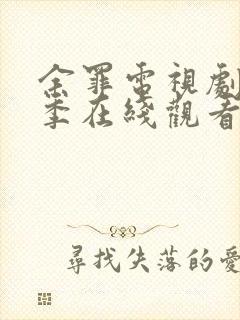 余罪電視劇
季在綫觀看
尋找失落的愛